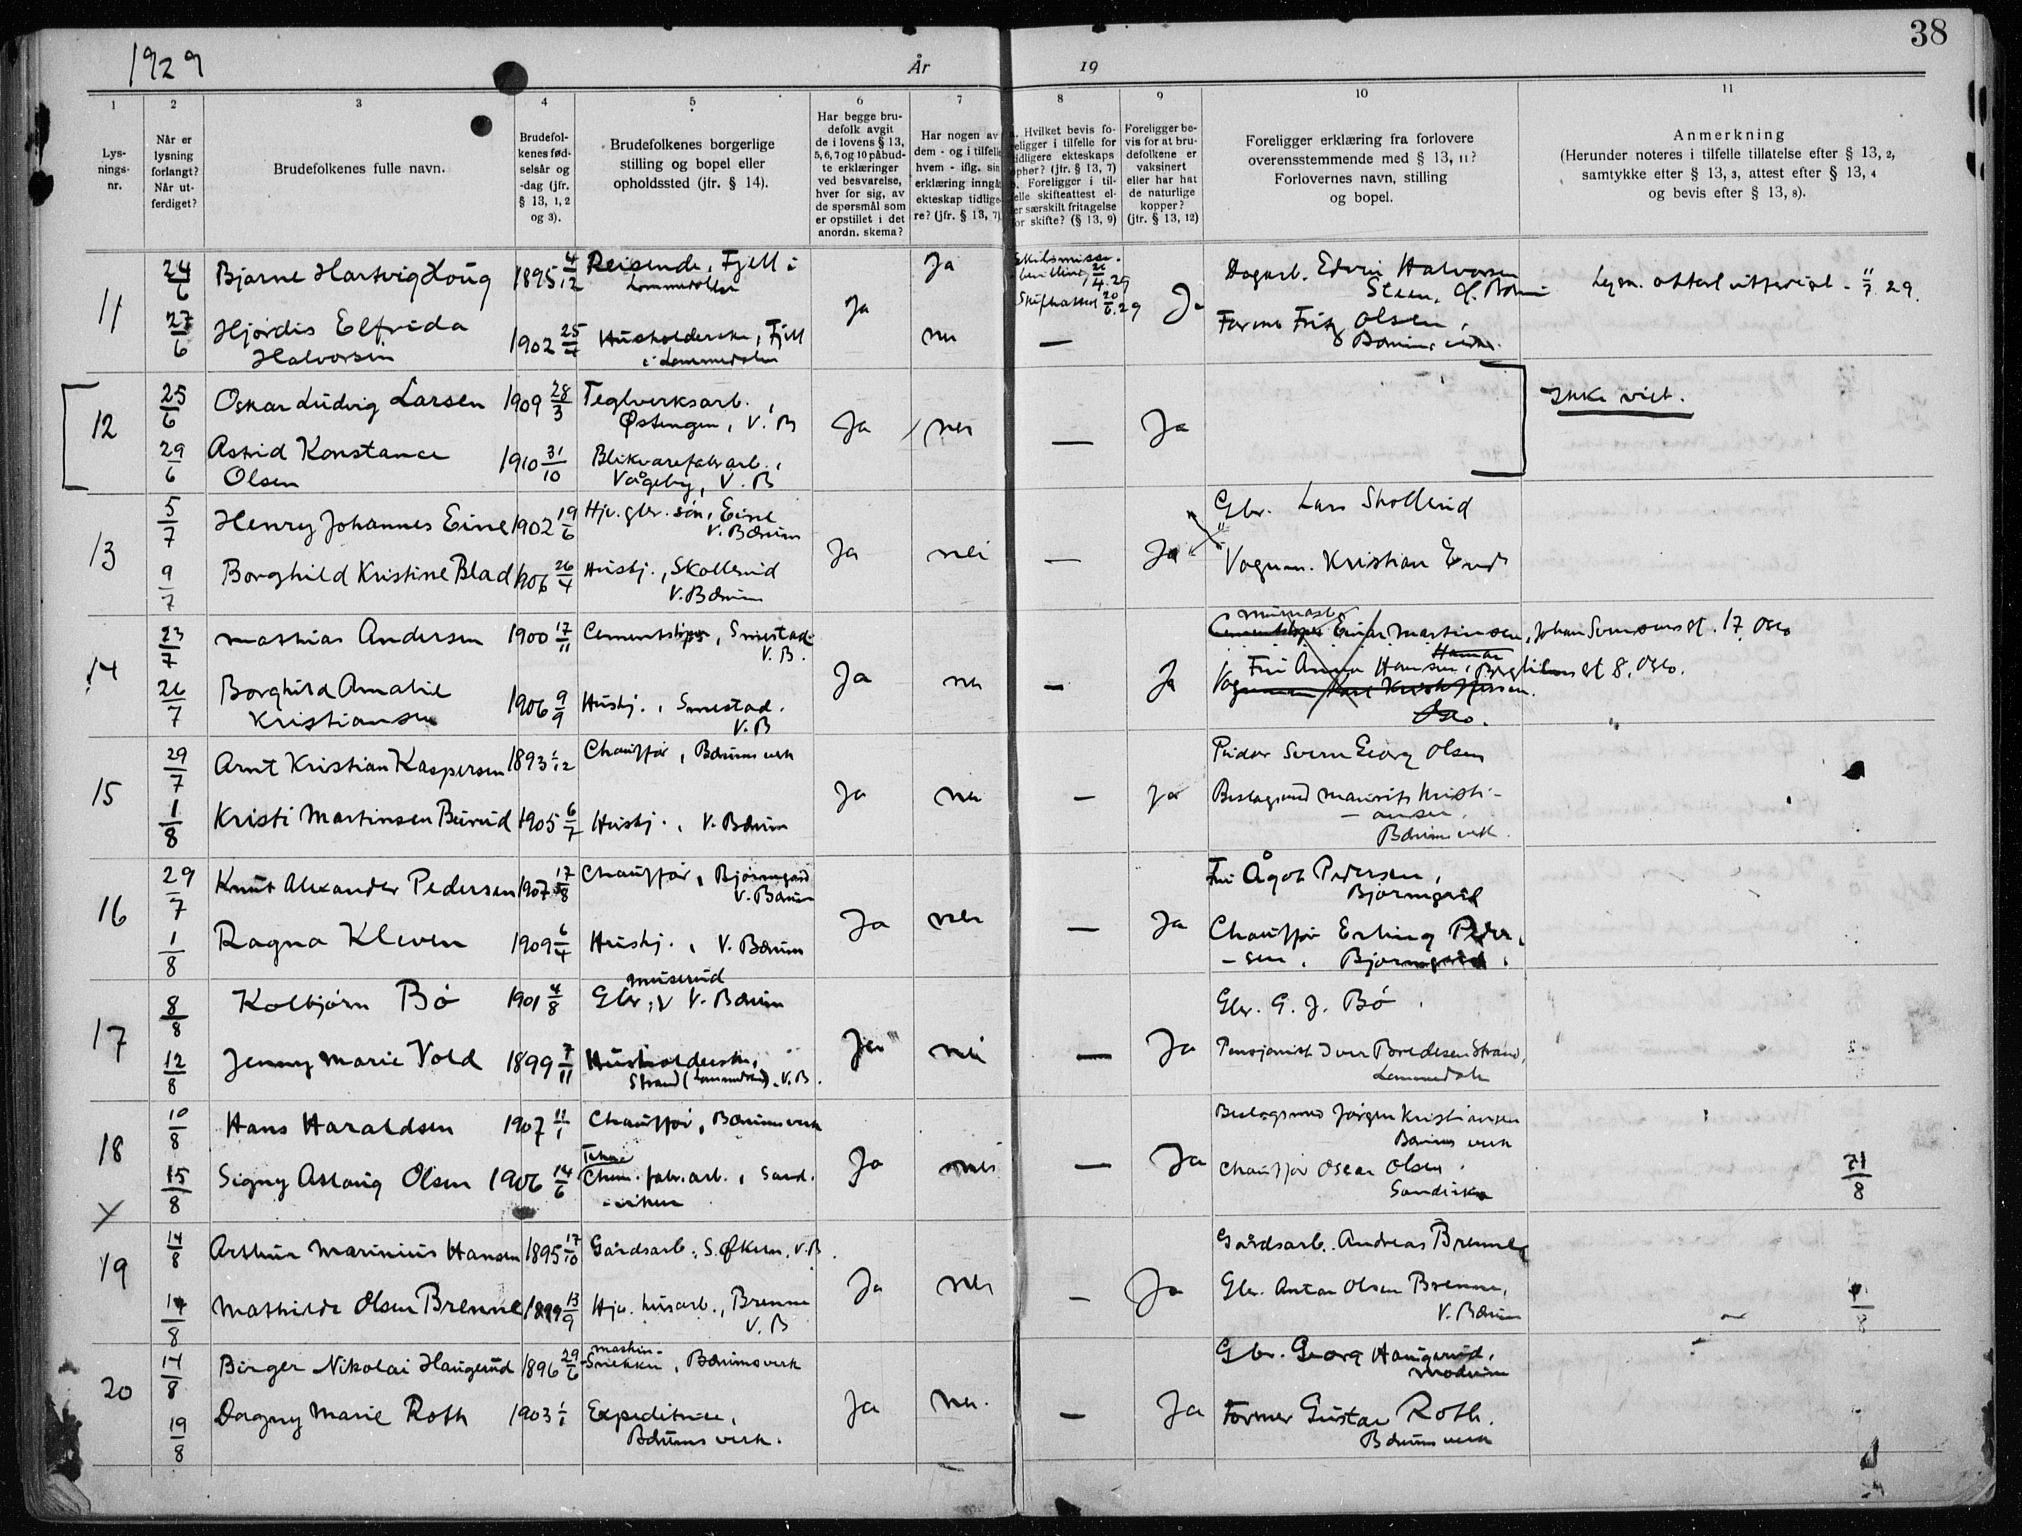 38
1929
År 19
1
2
3
4
5
6
7
8
9
10
11
Lys-
nings-
nr.
Når er
lysning
forlangt?
Når ut-
ferdiget?
Brudefolkenes fulle navn.
Brudefol-
kenes fød-
selsår og
-dag (jfr.
§ 13, 1, 2
og 3).
Brudefolkenes borgerlige
stilling og bopel eller
opholdssted (jfr. § 14).
Har begge bru-
defolk avgit
de i lovens § 13,
5, 6, 7 og 10 påbud-
te erklæringer
ved besvarelse,
hver for sig, av
de spørsmål som
er opstillet i det
anordn. skema?
Har nogen av
dem - og i tilfelle
hvem - iflg. sin
erklæring inngå
ekteskap tidlige-
re? (jfr. § 13, 7).
a. Hvilket bevis fo-
religger i tilfelle for
tidligere ekteskaps
opher? (jfr. § 13, 7)
b. Foreligger i til-
felle skifteattest el-
er særskilt fritagelse
or skifte? (§ 13, 9)
Foreligger be-
vis for at bru-
defolkene er
vaksinert
eller har hat
de naturlige
kopper?
(jfr. § 13, 12)
Foreligger erklæring fra forlovere
overensstemmende med § 13, 11?
Forlovernes navn, stilling
og bopel.
Anmerkning
(Herunder noteres i tilfelle tillatelse efter § 13, 2,
samtykke efter § 13, 3, attest efter § 13, 4
og bevis efter § 13, 8).
11
24/6 Bjarne Hartvig Houg 1895 4/12 Reisende, Fjell i
Lommedalen
Ja Ja
Skilsmisse-
bevilling 26/4.29
Skifteattest 20/6.29
Ja
Dagarb. Edvin Halvorsen
Steen,
Lysn. attest utferdiget - 11/7 29.
27/6 Hjørdis Elfrida
Halvorsen 1902 25/4 Husholderske, Fjell
i Lommedalen
nei —
Former Fritz Olsen,
Bærums verk.
12
25/6 Oskar Ludvig Larsen 1909 28/3 Teglverksarb.,
Østengen, V. B
Ja nei — Ja
Ikke viet.
29/6 Astrid Konstance
Olsen 1910 31/10 Blikvarefabrarb.,
Vågeby, V. B
13
5/7 Henry Johannes Eine 1902 19/6 Hjv. gbr. søn, Eine
V. Bærum
Ja nei — Ja
Gbr. Lars Skollerud
9/7 Borghild Kristine Blad 1906 26/4 Hushj., Skollerud
V. Bærum
Vognm. Kristian
14
23/7 Mathias Andersen 1900 17/11 Cementstøper, Smestad
V. B.
Ja nei — Ja
Einar Martinsen, Johan Svensens gt. 17, Oslo
Hamar
26/7 Borghild Amalie
Kristiansen 1906 9/9 Hushj., Smestad.
V. B
Fru Anna Hansen, gt 8, Oslo.
Oslo.
15
29/7 Arnt Kristian Kaspersen 1893 1/12 Chauffør, Bærums verk
Ja nei — Ja
Svein Georg Olsen
1/8 Kristi Martinsen Beirud 1905 6/7 Hushj., V. Bærum
Beslagsmed Mauritz Kristi-
- ansen,
Bærums verk.
16
29/7 Knut Alexander Pedersen 1907 17/8 Chauffør, Bjørumgård
V. Bærum
Ja nei — Ja
Fru Ågot Pedersen,
Bjørumgård
1/8 Ragna Kleven 1909 6/4 Hushj., V. Bærum
Chauffør Erling Peder-
- sen, Bjørumgård.
17
8/8 Kolbjørn Bø 1901 4/8 Gbr., V. Bærum
Muserud
Ja nei — Ja
Gbr. G. J. Bø.
12/8 Jenny Marie Vold 1899 7/11 Husholderske,
Strand (Lommedalen), V. B.
Pensjonist Iver Bredesen Strand,
Lommedalen
18
10/8 Hans Haraldsen 1907 11/1 Chauffør, Bærums verk
Ja nei — Ja
Beslagsmed Jørgen Kristiansen
Bærums verk
15/8 Signy Aslaug Olsen 1906 14/6 fabr.arb., Sand-
- viken
Chauffør Oscar Olsen.
Sandvika
21/8
19
14/8 Arthur Marinius Hansen 1895 17/10 Gårdsarb., S. Økern, V. B.
Ja nei — Ja
Gårdsarb. Andreas Brenne
14/8 Mathilde Olsen Brenne 1899 13/9 Hjv. husarb., Brenne
V. B
Gbr. Anton Olsen Brenne,
V. Bærum
20
14/8 Birger Nikolai Haugerud 1896 29/6 maskin-
Snekker, Bærums verk
Ja nei. — Ja
Gbr. Georg Haugerud,
Modum
19/8 Dagny Marie Roth 1903 1/1 Expeditrice,
Bærums verk.
Former Gustav Roth.
Bærums verk